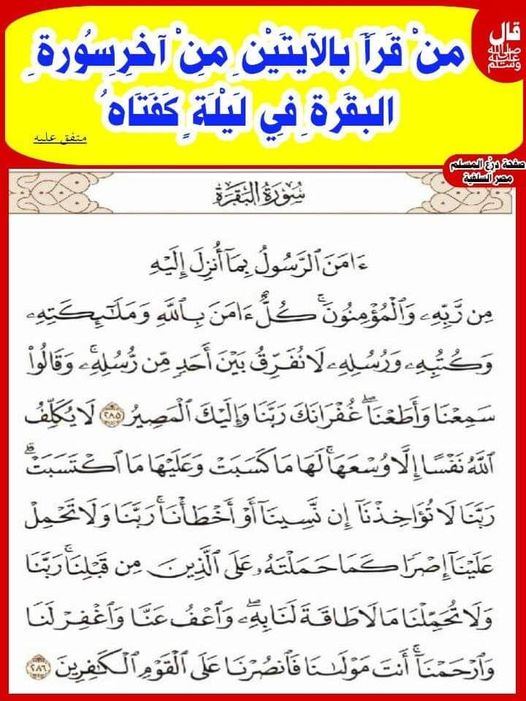 قال
صلى الله عليه وسلم
مَنْ قَرَأَ بالآيتَيْنِ مِنْ آخرِ سُورةِ
البقَرةِ فِي لَيْلَةٍ كَفَتَاهُ
متفق عليه
صفحة درع المسلم
مصر السلفية
سُورَةُ البَقَرَةِ
ءَامَنَ ٱلرَّسُولُ بِمَآ أُنزِلَ إِلَيْهِ
مِن رَّبِّهِۦ وَٱلْمُؤْمِنُونَۚ كُلٌّ ءَامَنَ بِٱللَّهِ وَمَلَٰٓئِكَتِهِۦ
وَكُتُبِهِۦ وَرُسُلِهِۦ لَا نُفَرِّقُ بَيْنَ أَحَدٍ مِّن رُّسُلِهِۦۚ وَقَالُوا۟
سَمِعْنَا وَأَطَعْنَاۖ غُفْرَانَكَ رَبَّنَا وَإِلَيْكَ ٱلْمَصِيرُ ٢٨٥ لَا يُكَلِّفُ
ٱللَّهُ نَفْسًا إِلَّا وُسْعَهَاۚ لَهَا مَا كَسَبَتْ وَعَلَيْهَا مَا ٱكْتَسَبَتْۗ
رَبَّنَا لَا تُؤَاخِذْنَآ إِن نَّسِينَآ أَوْ أَخْطَأْنَاۚ رَبَّنَا وَلَا تَحْمِلْ
عَلَيْنَآ إِصْرًا كَمَا حَمَلْتَهُۥ عَلَى ٱلَّذِينَ مِن قَبْلِنَاۚ رَبَّنَا
وَلَا تُحَمِّلْنَا مَا لَا طَاقَةَ لَنَا بِهِۦۖ وَٱعْفُ عَنَّا وَٱغْفِرْ لَنَا
وَٱرْحَمْنَآۚ أَنتَ مَوْلَىٰنَا فَٱنصُرْنَا عَلَى ٱلْقَوْمِ ٱلْكَٰفِرِينَ ٢٨٦